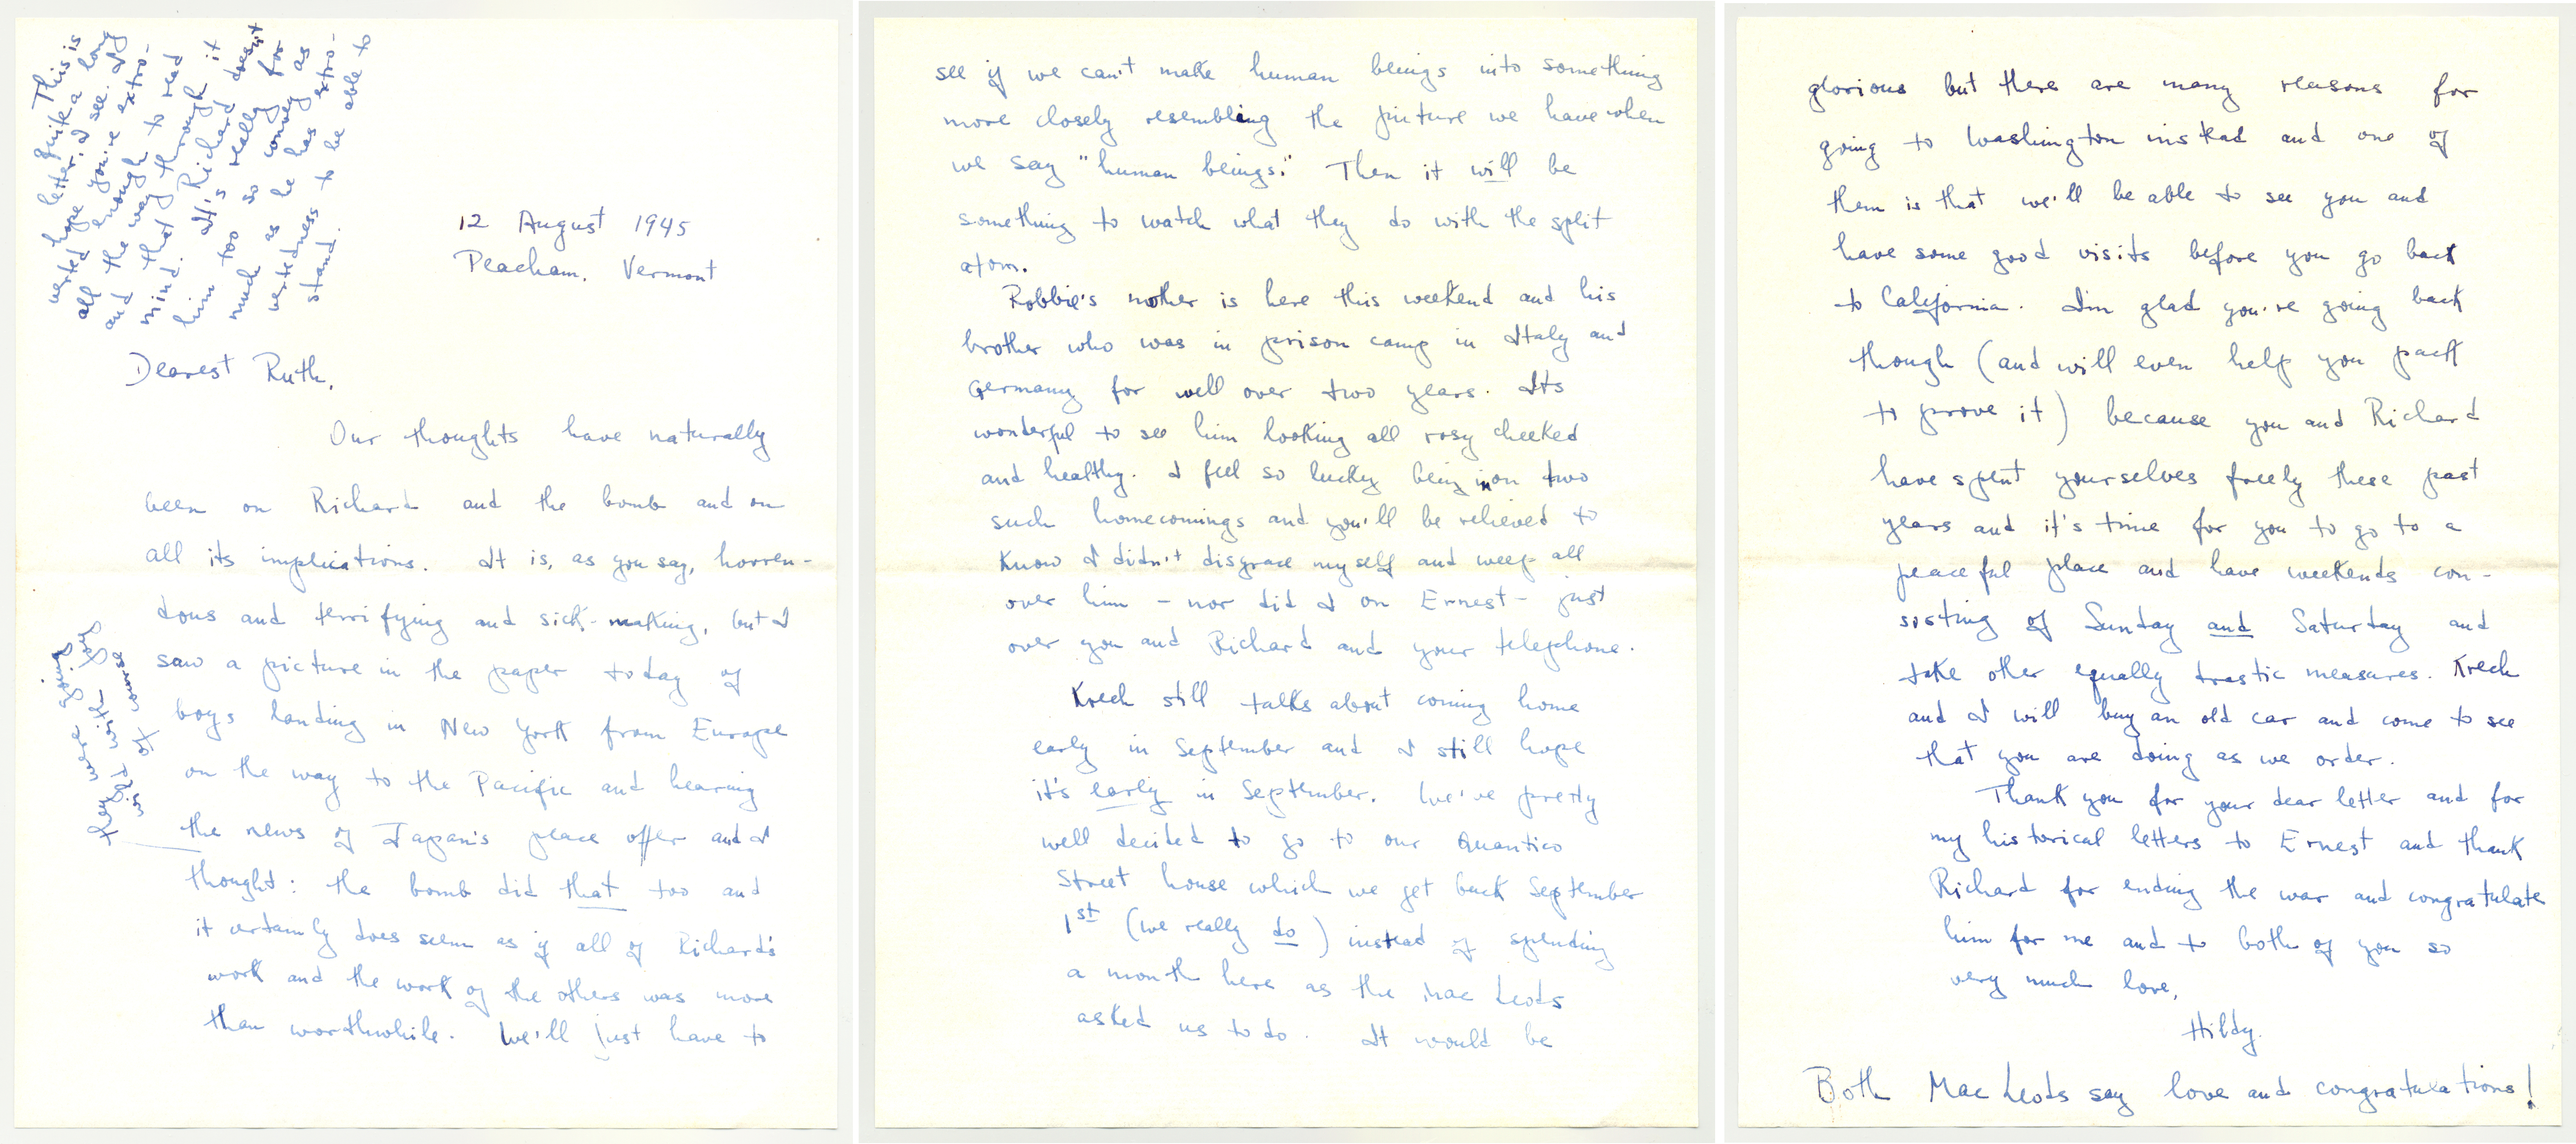 This is
quite a long
letter, I see. I
hope you're extro-
verted enough to read
all the way through it
and that Richard doesn't
mind. It's really for
him too so convey as
much as he has extro-
vertedness to be able to
stand.
12 August 1945
Peacham, Vermont
Dearest Ruth,
Our thoughts have naturally
been on Richard and the bomb and on
all its implications. It is, as you say, horren-
dous and terrifying and sick-making, but I
saw a picture in the paper today of
boys landing in New York from Europe
on the way to the Pacific and hearing
the news of Japan's peace offer and I
thought: the bomb did that too and
it certainly does seem as if all of Richard's
work and the work of the others was more
than worthwhile. We'll just have to
they were going
wild with joy
of course
see if we can't make human beings into something
more closely resembling the picture we have when
we say "human beings." Then it will be
something to watch what they do with the split
atom.
Robbie's mother is here this weekend and his
brother who was in prison camp in Italy and
Germany for well over two years. Its
wonderful to see him looking all rosy cheeked
and healthy. I feel so lucky being in on two
such homecomings and you'll be relieved to
know I didn't disgrace myself and weep all
over him – nor did I on Ernest – just
over you and Richard and your telephone.
Krech still talks about coming home
early in September and I still hope
it's early in September. We've pretty
well decided to go to our Quantico
Street house which we get back September
1st (we really do) instead of spending
a month here as the Mac Leods
asked us to do. It would be
glorious but there are many reasons for
going to Washington instead and one of
them is that we'll be able to see you and
have some good visits before you go back
to California. I'm glad you're going back
though (and will even help you pack
to prove it) because you and Richard
have spent yourselves freely these past
years and it's time for you to go to a
peaceful place and have weekends con-
sisting of Sunday and Saturday and
take other equally drastic measures. Krech
and I will buy an old car and come to see
that you are doing as we order.
Thank you for your dear letter and for
my historical letters to Ernest and thank
Richard for ending the war and congratulate
him for me and to both of you so
very much love,
Hildy.
Both Mac Leods say love and congratulations!